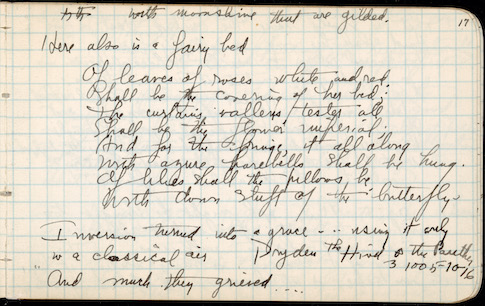 with moonshine that are gilded.
17
Here also is a fairy bed
Of leaves of roses white and red
Shall be the covering of her bed;
The curtains, vallens, tester all
Shall be the flower imperial;
And for the fringe, it all along
With azure harebells shall be hung.
Of lilies shall the pillows be
With down stuff of the butterfly
Inversion turned into a grace --- using it only
in a classical air Dryden The Hind & the Panther
3 1005-1016
"And much they grieved....